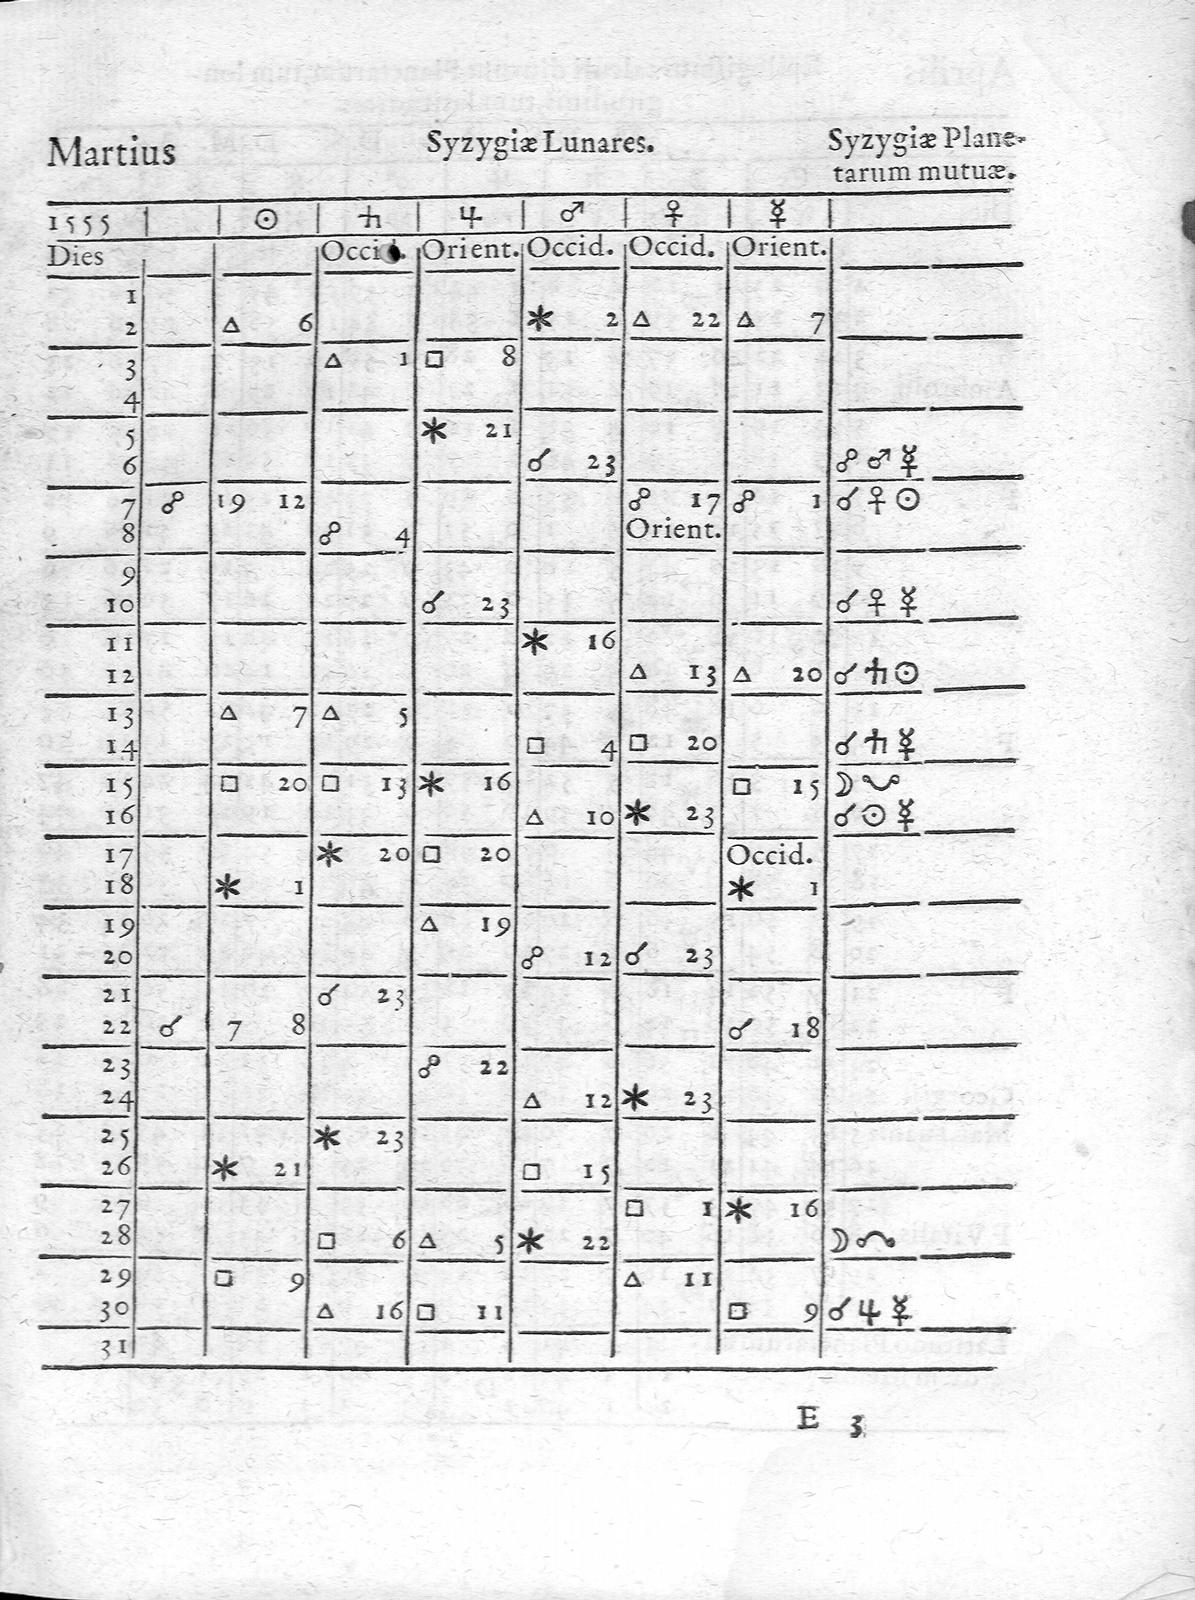 Martius Syzygiæ Lunares. Syzygiæ Plane-
tarum mutuæ.
1555 ☉ ♄ ♃ ♂ ♀ ☿
Dies Occid. Orient. Occid. Occid. Orient.
1
2 △ 6 ✶ 2 △ 22 △ 7
3 △ 1 □ 8
4
5 ✶ 21
6 ☌ 23 ☍ ♂ ☿
7 ☍ 19 12 ☍ 17 ☍ 1 ☌ ♀ ☉
8 ☍ 4 Orient.
9
10 ☌ 23 ☌ ♀ ☿
11 ✶ 16
12 △ 13 △ 20 ☌ ♄ ☉
13 △ 7 △ 5
14 □ 4 □ 20 ☌ ♄ ☿
15 □ 20 □ 13 ✶ 16 □ 15 ☽ ☋
16 △ 10 ✶ 23 ☌ ☉ ☿
17 ✶ 20 □ 20 Occid.
18 ✶ 1 ✶ 1
19 △ 19
20 ☍ 12 ☌ 23
21 ☌ 23
22 ☌ 7 8 ☌ 18
23 ☍ 22
24 △ 12 ✶ 23
25 ✶ 23
26 ✶ 21 □ 15
27 □ 1 ✶ 16
28 □ 6 △ 5 ✶ 22 ☽ ☊
29 □ 9 △ 11
30 △ 16 □ 11 □ 9 ☌ ♃ ☿
31
E 3